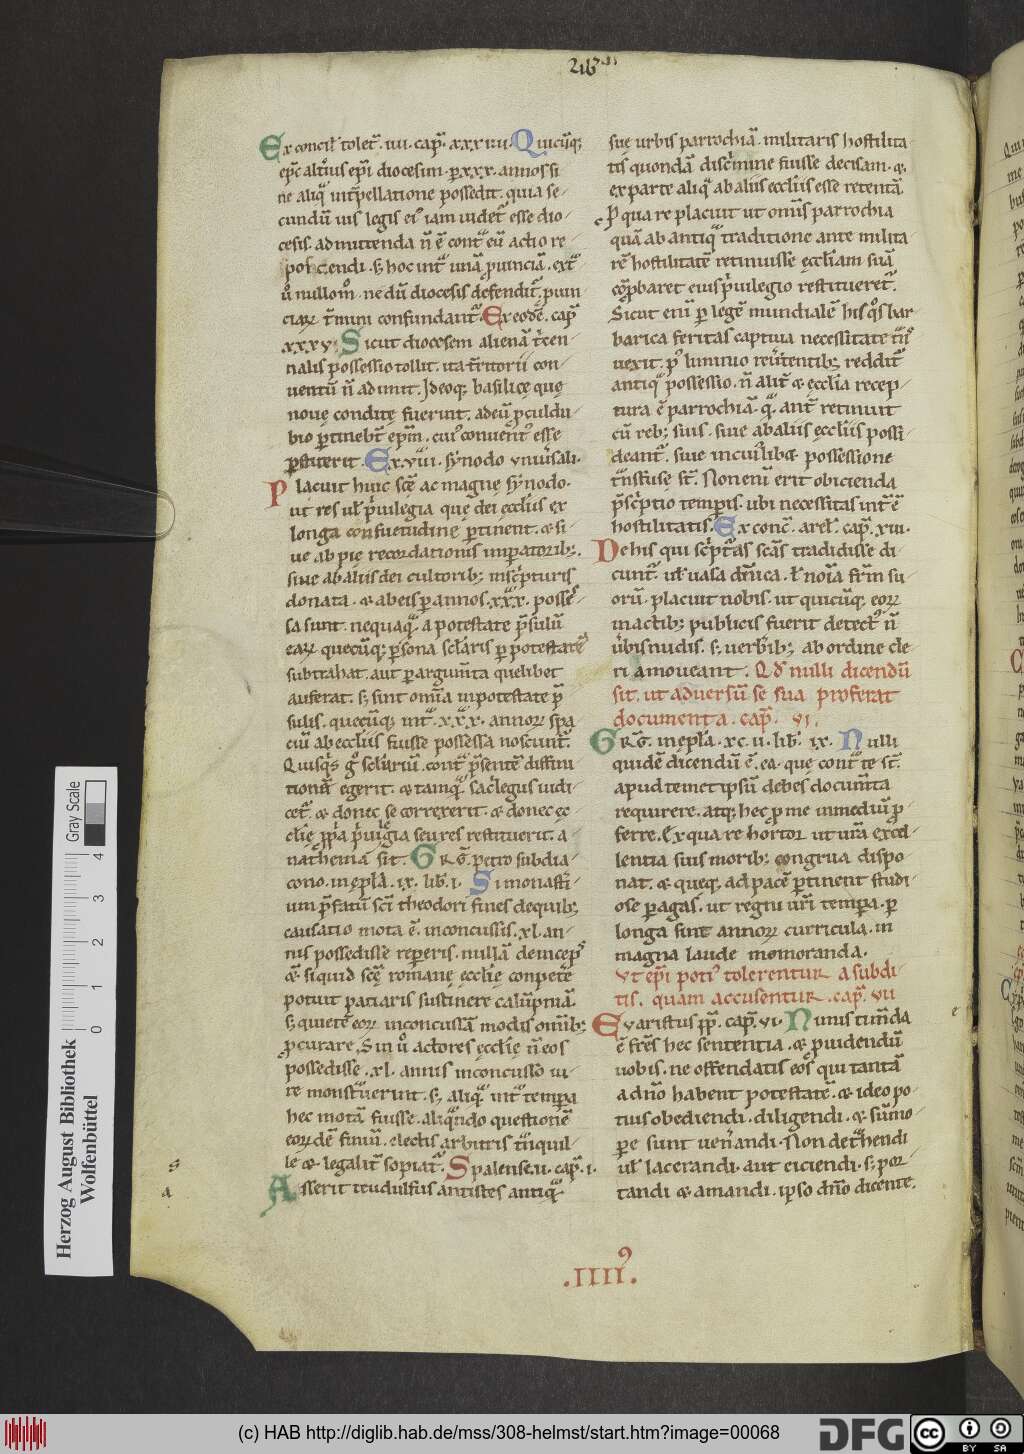 Ex concil̄ tolet̄. iiii. cap̄. xxxiiii. Quicūq;
ep̄c alt̄ius ep̄i diocesim. p̄ xxx. annos si
ne aliq̄ int̄pellatione possedit. quia se-
cundū ius legis ei iam uidet̄ esse dio-
cesis. admittenda n̄ ē cont̄ eū actio re
poscendi. s; hoc int̄ unā p̄uinciā. ext̄
ū nullom̊. ne dū diocesis defendit̄. p̄uin
ciaꝝ t̄mini confundant̄. Ex eodē. cap̄
xxxv. Sicut diocesem alienā t̄cen-
nalis possessio tollit. ita t̄ritorii con-
uentū n̄ adimit. Ideoq; basilicę quę
nouę conditę fuerint. ad eū p̄culdu-
bio p̄tinebt̄ ep̄m. cui conuent; esse
p̄stiterit. Ex. viii. synodo uniūsali.
Placuit huic sc̄ę ac magnę synodo.
ut res ul̄ p̄uilegia quę dei ęccl̄iis ex
longa consuetudine p̄tinent. & si-
ue ab pię recordationis imperatorib;.
siue ab aliis dei cultorib; in sc̄pturis
donata. & ab eis p̄ annos. xxx. posses-
sa sunt. nequaq̄ a potestate p̄sulū
eaꝝ quecūq; p̄sona sc̄laris p̄ potestatē
subtrahat. aut p̄ argum̄ta quelibet
auferat. s; sint om̄ia in potestate p̄
sulis. quecūq; int̄. xxx. annoꝝ spa
ciū ab eccl̄iis fuisse possessa noscunt̄.
Quisq̄s ḡ sc̄lariū. cont̄ p̄sentē diffini
tionē egerit. & tamq̄ sac̄legus iudi-
cet̄. & donec se correxerit. & donec ęc
cl̄ię p̄p̄a p̄uilegia seu res restituerit. a-
nathema sit. GRḠ. petro subdia-
cono. in ep̄la. ix. lib̄. i. Si monast̄i-
um p̄fatū sc̄i theodori fines de quib;
causatio mota ē. inconcussis. xl. an-
nis possedisse repperis. nullā deincep̄
& si quid sc̄ę romanę ęccl̄ię conpetē
potuit patiaris sustinere calūpniā.
s; quietē eoꝝ inconcussā modis om̄ib;
p̄curare. Sin ū actores ęccl̄ię n̄ eos
possedisse. xl. annis inconcusso iu-
re monst̄uerint. s; aliq̄ int̄ tempa
hec motā fuisse. aliq̄ndo questionē
eoꝝdē finiū. electis arbitris t̄nquil-
le & legalit̄ sopiat̄. Spalense. ii. cap̄. i.
Asserit teudulfus antistes antiq̄
sue urbis parrochiā. militaris hostilita-
tis quondā disc̄imine fuisse decisam. &
ex parte aliq̄ ab aliis eccl̄iis esse retentā.
P̄ qua re placuit ut om̄is parrochia
quā ab antiq̄ traditione ante milita-
rē hostilitatē retinuisse ęccl̄iam suā
cōp̄baret eius p̄uilegio restitueret̄.
Sicut enī p̄ legē mundialē his q̊s bar
barica feritas captiua necessitate t̄ns
uexit. p̄ liminio reūtentib; reddit̄
antiq̄ possessio. n̄ alit̄ & ęccl̄ia recep-
tura ē parrochiā. q̄ ant̄ retinuit
cū reb; suis. siue ab aliis ęccl̄iis possi-
deant̄. siue in cuiuslib& possessione
t̄nsfuse st̄. Non enī erit obicienda
p̄sc̄ptio temp̄is. ubi necessitas int̄ ē
hostilitatis. Ex conc̄. arel. cap̄. xiii.
De his qui sc̄pt̄as sc̄as tradidisse di
cunt̄. ul̄ uasa dn̄ica. l̄ noīa fr̄m su-
orū. placuit nobis. ut quicūq; eoꝝ
in actib; publicis fuerit detect; n̄
ūbis nudis. s; uerberib; ab ordine cle-
ri amoueant̄. Qd̄ nulli dicendū
sit. ut aduersū se sua proferat
documenta. cap̄. vi.
GRḠ. in ep̄la. xc. ii. lib̄. ix. Nulli
quidē dicendū ē. ea. que cont̄ te st̄.
apud temetipsū debes docum̄ta
requirere. atq; hec p̄ me in mediū p̄
ferre. Ex qua re hortor ut ur̄a excel-
lentia suis morib; congrua dispo
nat. & queq; ad pacē p̄tinent studi-
ose p̄agas. ut regni ur̄i tempa. p̄
longa sint annoꝝ curricula. in
magna laude memoranda.
Vt ep̄i poti; tolerentur a subdi-
tis. quam accusentur. cap̄. vii
Evaristus pp̄. cap̄. vi. Nimis tim̄da
ē fr̄s hec sententia. & p̄uidendū
uobis. ne offendatis eos qui tantā
a dn̄o habent potestatē. & ideo po-
tius obediendi. diligendi. & sūmo-
p̄e sunt uen̄andi. Non det̄hendi
ul̄ lacerandi. aut eiciendi. s; por-
tandi & amandi. ipso dn̄o dicente.
.IIII⁹.
Herzog August Bibliothek
Wolfenbüttel
Gray Scale
0 1 2 3 4
(c) HAB http://diglib.hab.de/mss/308-helmst/start.htm?image=00068
DFG
cc BY SA